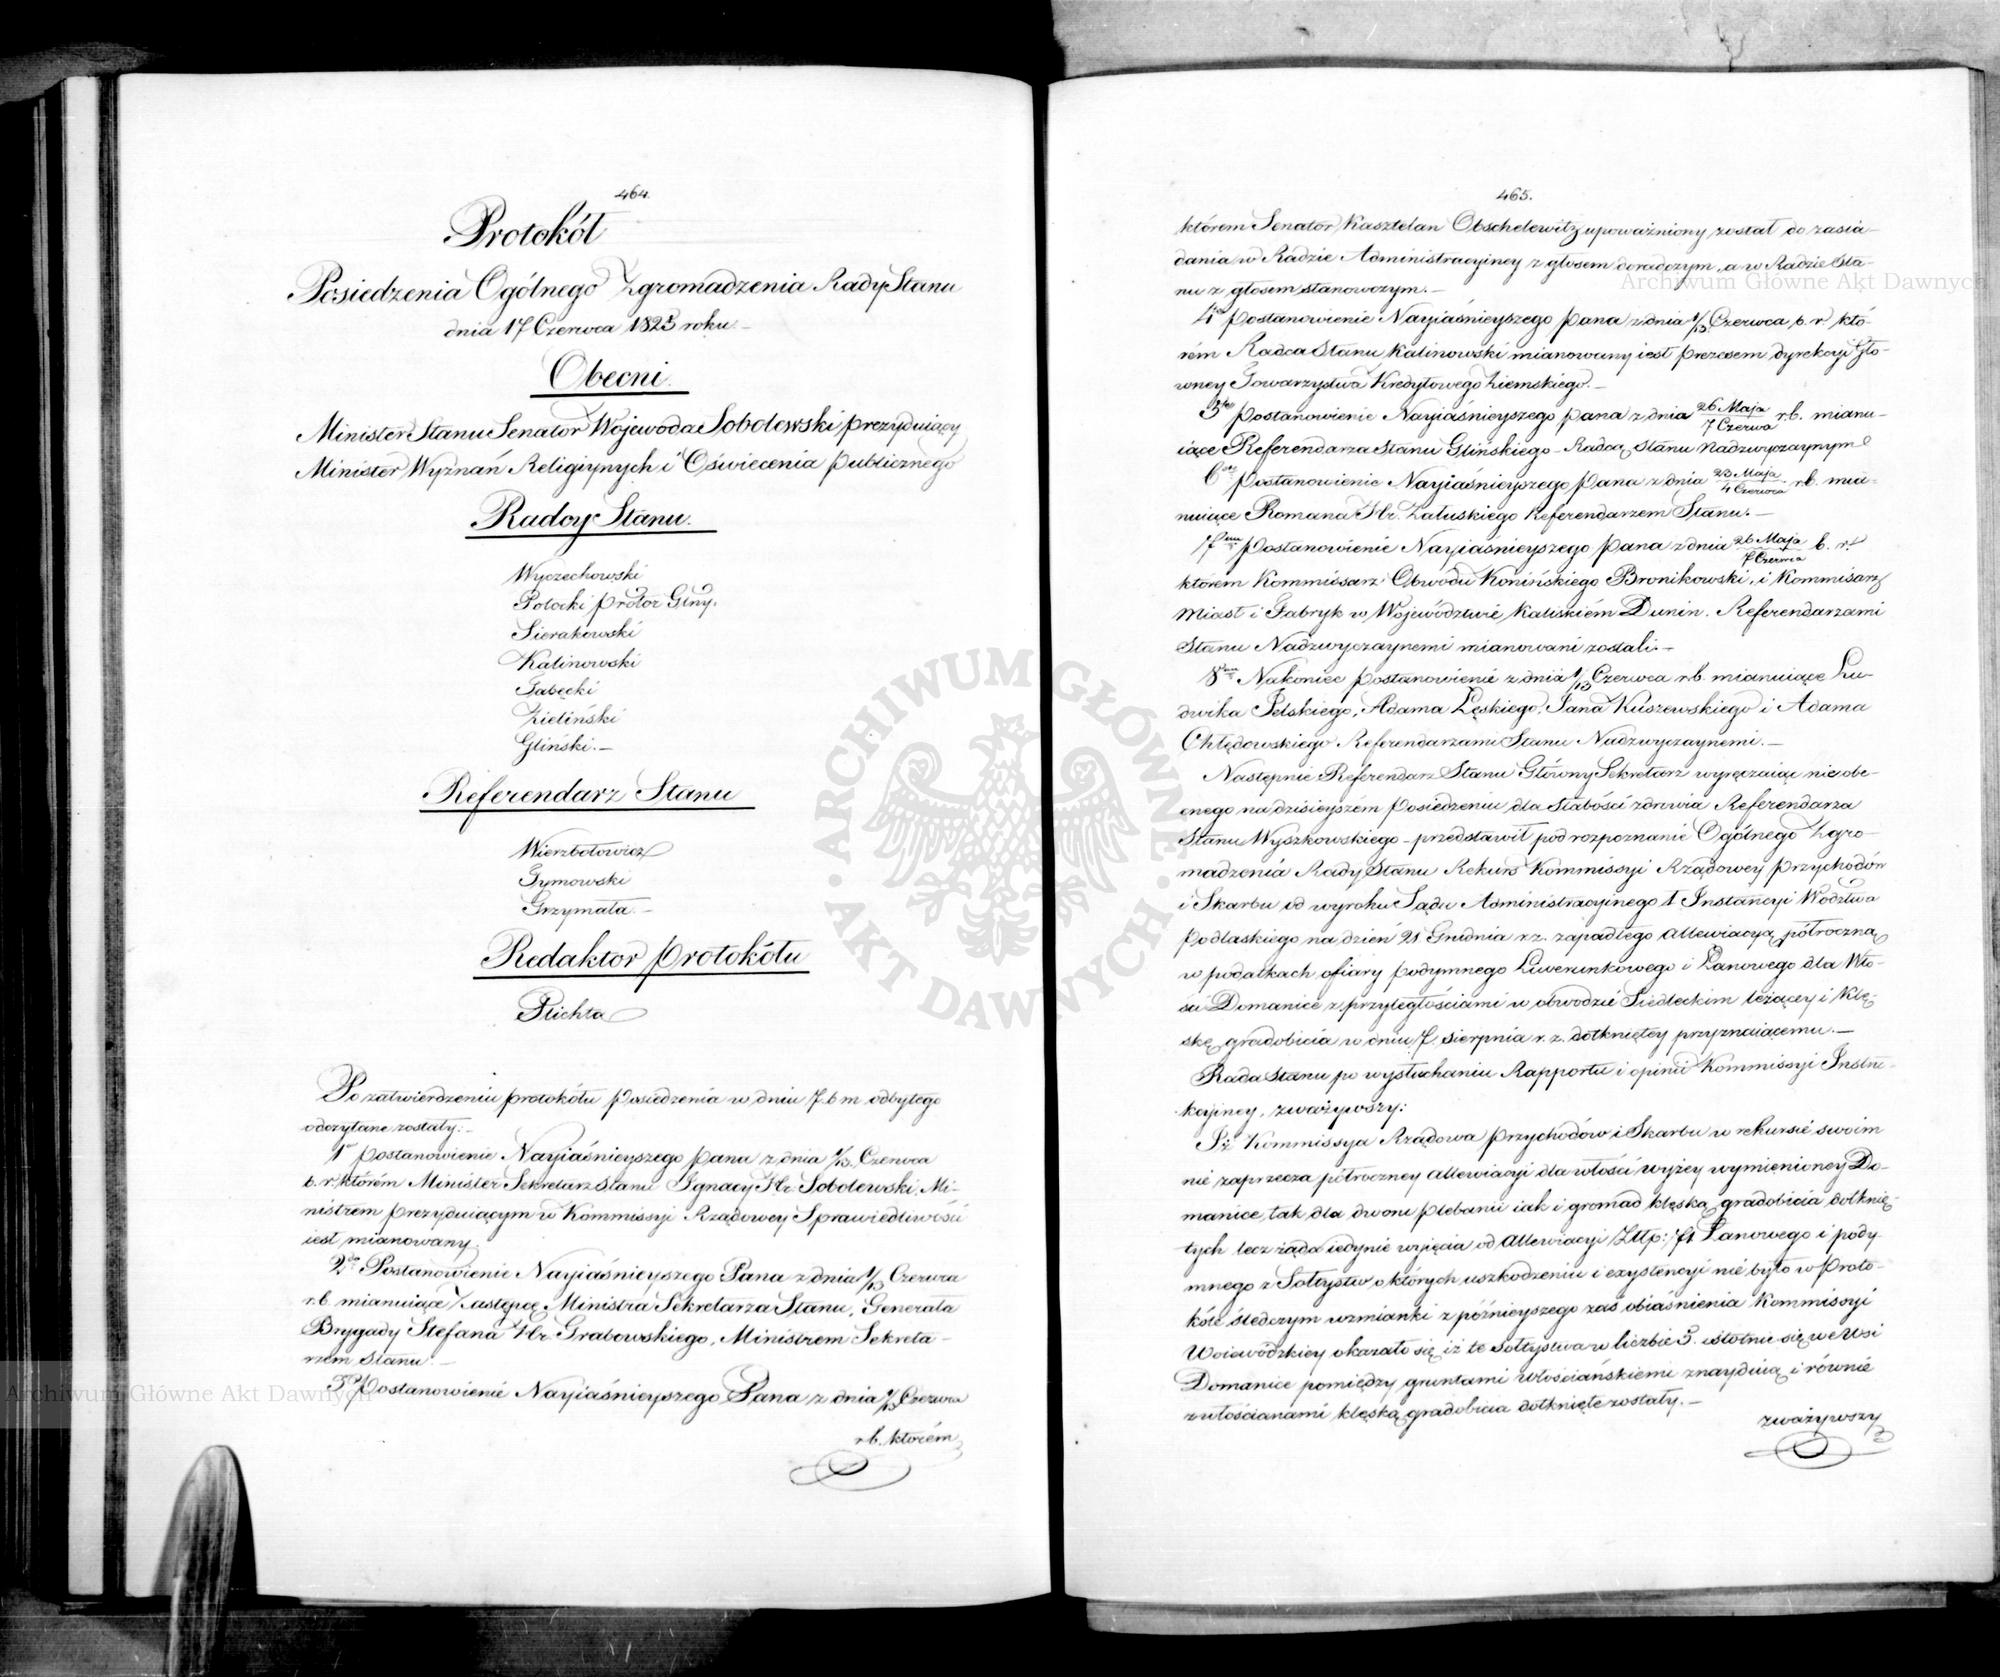 464.
Protokół
Posiedzenia Ogólnego Zgromadzenia Rady Stanu
dnia 17 Czerwca 1825 roku.
Obecni.
Minister Stanu Senator Wojewoda Sobolewski prezyduiący
Minister Wyznań Religiynych i Oświecenia publicznego
Radcy Stanu.
Wyczechowski
Potocki protor Glny.
Sierakowski
Kalinowski
Gabecki
Zieliński
Gliński.—
Referendarz Stanu
Wierzbołowicz
Tymowski
Grzymała.—
Redaktor protokółu
Plichta
Po zatwierdzeniu protokółu posiedzenia w dniu 7. b m odbytego
odczytane zostały:—
1o postanowienie Nayiaśnieyszego pana z dnia 1/13. Czerwca
b. r. którém Minister Sekretarz Stanu Ignacy Hr: Sobolewski, Mi-
nistrem prezyduiącym w Kommissyi Rządowey Sprawiedliwości
iest mianowany.
2do Postanowienie Nayiaśnieyszego Pana z dnia 1/13 Czerwca
r.b. mianuiące Zastępcę Ministra Sekretarza Stanu, Generała
Brygady Stefana Hr. Grabowskiego, Ministrem Sekreta-
rzem Stanu.—
3o Postanowienié Nayiaśnieyszego Pana z dnia 1/13 Czerwca
r.b. którém
465.
którem Senator Kasztelan Obschelewitz upoważniony został do zasia-
dania w Radzie Administracyiney z głosem doradczym, a w Radzie Sta-
nu z głosem stanowczym.—
4to postanowienie Nayiaśnieyszego pana z dnia 1/13 Czerwca b. r. któ-
rém Radca Stanu Kalinowski mianowany iest prezesem dyrekcyi Głó-
wney Towarzystwa Kredytowego Ziemskiego.—
5to postanowienie Nayiaśnieyszego pana z dnia 26 Maja/7 Czerwca r.b. mianu-
iące Referendarza Stanu Glińskiego Radcą Stanu Nadzwyczaynym
6to postanowienie Nayiaśnieyszego pana z dnia 23 Maja/4 Czerwca r.b. mia-
nuiące Romana Hr. Załuskiego Referendarzem Stanu.—
7mo postanowienié Nayiaśnieyszego pana z dnia 26 Maja/7 Czerwca b. r.
którém Kommissarz Obwodu Konińskiego Bronikowski, i Kommisarz
Miast i Fabryk w Województwié Kaliskiém Dunin. Referendarzami
Stanu Nadzwyczaynemi mianowani zostali.—
8vo Nakoniec postanowienié z dnia 1/13 Czerwca r.b. mianuiące Lu-
dwika Pelskiego, Adama Łęskiego, Jana Kuszewskiego i Adama
Chłędowskiego Referendarzami Stanu Nadzwyczaynemi.—
Następnie Referendarz Stanu Główny Sekretarz wyręczaiąc nieobe-
cnego na dzisieyszém posiedzeniu dla słabości zdrowia Referendarza
Stanu Wyszkowskiego—przedstawił pod rozpoznanié Ogólnego Zgro-
madzenia Rady Stanu Rekurs Kommissyi Rządowey przychodów
i Skarbu od wyroku Sądu Administracyinego 1 Instancyi Wodztwa
Podlaskiego na dzień 21 Grudnia r.z. zapadłego allewiacyą półroczną
w podatkach ofiary podymnego Liwerunkowego i Łanowego dla Wło-
ści Domanice z przyległościami w obwodzié Siedleckim leżącey i klę-
ską gradobicia w dniu 7. sierpnia r. z. dotkniętey przyznaiącemu.—
Rada Stanu po wysłuchaniu Rapportu i opinii Kommissyi Instru-
kcyiney, zważywszy:
Iż Kommissya Rządowa przychodów i Skarbu w rekursié swoim
nié zaprzecza półroczney allewiacyi dla włości wyżey wymienioney Do-
manice, tak dla dworu plebanii iak i gromad klęską gradobicia dotknię-
tych lecz żąda iedynié wyięcia od allewiacyi Złtp: 71 Łanowego i pody-
mnego z Sołtystw o których uszkodzeniu i exystencyi nié było w Proto-
kóle śledczym wzmianki z późnieyszego zaś obiaśnienia Kommissyi
Woiewódzkiey okazało się, iż te sołtystwa w liczbie 5. istotnie się we wsi
Domanice pomiędzy gruntami włościańskiemi znayduią i równié
z włościanami klęską gradobicia dotknięte zostały.—
zważywszy
ARCHIWUM GŁÓWNE AKT DAWNYCH
Archiwum Główne Akt Dawnych
Archiwum Główne Akt Dawnych